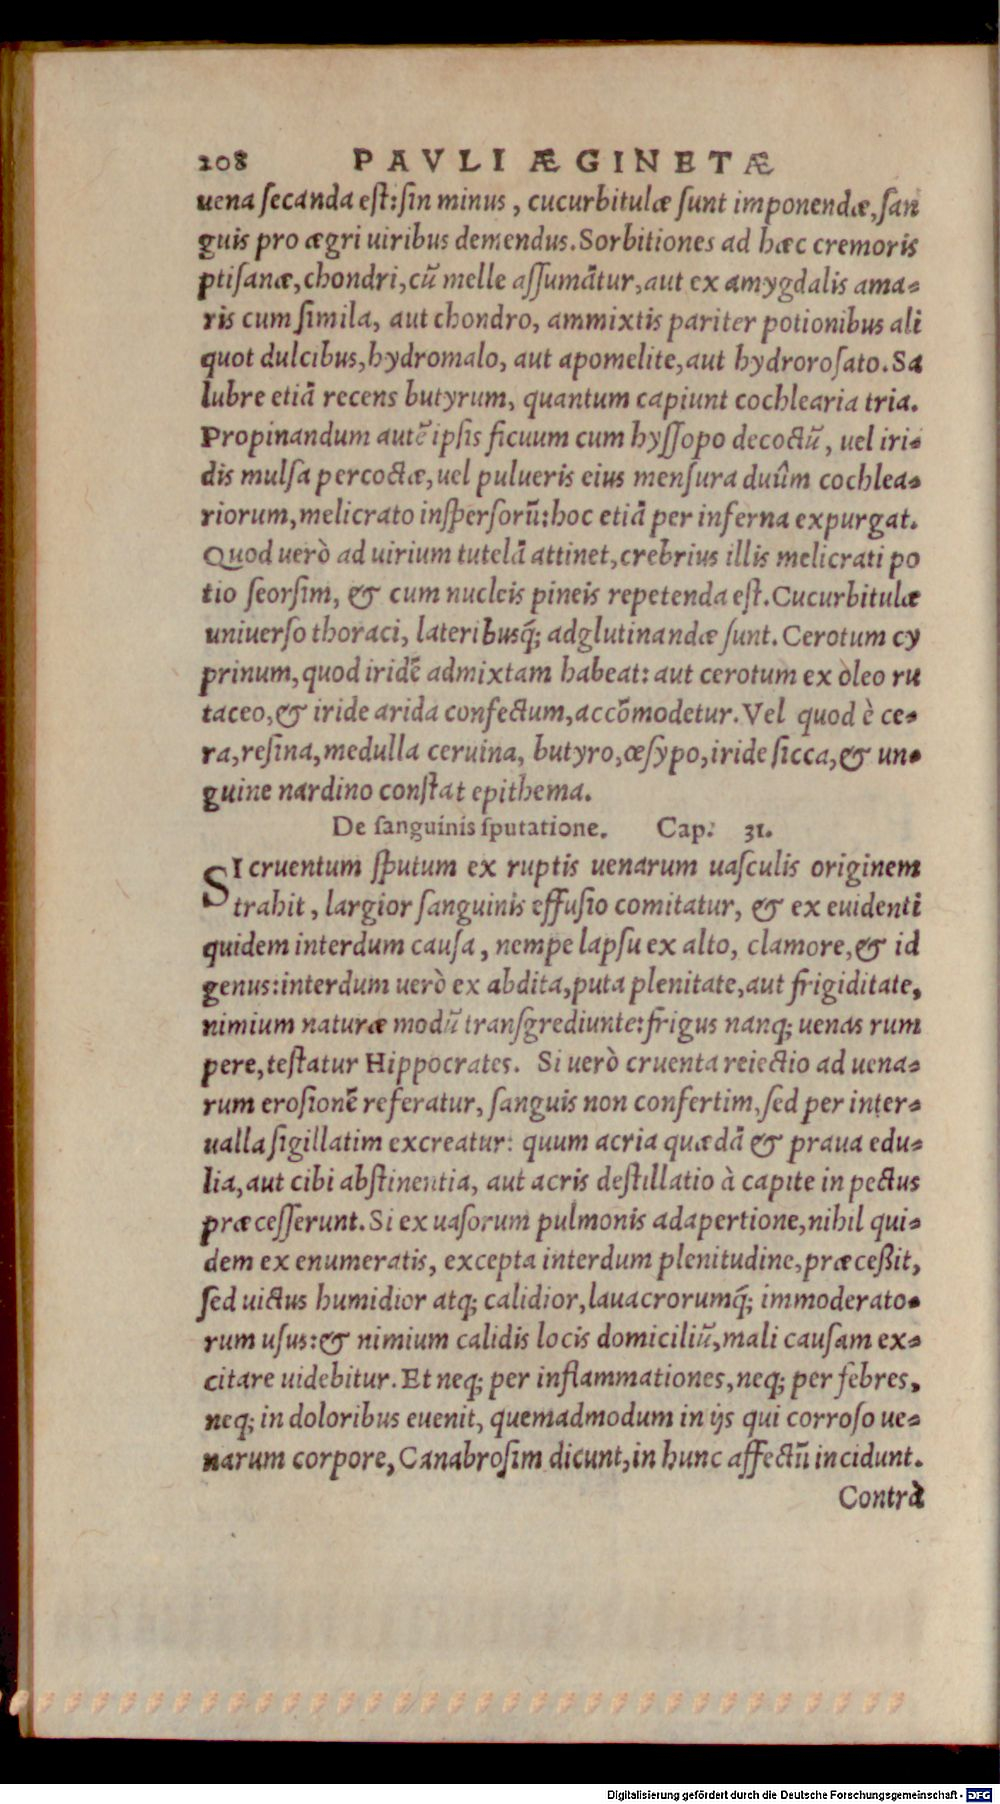 208 PAVLI ÆGINETÆ
uena ſecanda eſt:ſin minus, cucurbitulæ ſunt imponendæ,ſan
guis pro ægri uiribus demendus.Sorbitiones ad hæc cremoris
ptiſanæ,chondri,cũ melle aſſumãtur,aut ex amygdalis ama-
ris cum ſimila, aut chondro, ammixtis pariter potionibus ali
quot dulcibus,hydromalo, aut apomelite,aut hydroroſato.Sa
lubre etiã recens butyrum, quantum capiunt cochlearia tria.
Propinandum autẽ ipſis ficuum cum hyſſopo decoctũ, uel iri-
dis mulſa percoctæ,uel pulueris eius menſura duûm cochlea-
riorum,melicrato inſperſorũ:hoc etiã per inferna expurgat.
Quod uerò ad uirium tutelã attinet,crebrius illis melicrati po
tio ſeorſim, & cum nucleis pineis repetenda eſt.Cucurbitulæ
uniuerſo thoraci, lateribusq́; adglutinandæ ſunt.Cerotum cy
prinum,quod iridẽ admixtam habeat: aut cerotum ex oleo ru
taceo,& iride arida confectum,accõmodetur.Vel quod è ce-
ra,reſina,medulla ceruina, butyro,œſypo,iride ſicca,& un-
guine nardino conſtat epithema.
De ſanguinis ſputatione. Cap. 31.
SI cruentum ſputum ex ruptis uenarum uaſculis originem
trahit, largior ſanguinis effuſio comitatur, & ex euidenti
quidem interdum cauſa, nempe lapſu ex alto, clamore,& id
genus:interdum uerò ex abdita,puta plenitate,aut frigiditate,
nimium naturæ modũ tranſgrediunte:frigus nanq; uenas rum
pere,teſtatur Hippocrates. Si uerò cruenta reiectio ad uena-
rum eroſionẽ referatur, ſanguis non confertim,ſed per inter-
ualla ſigillatim excreatur: quum acria quædã & praua edu-
lia,aut cibi abſtinentia, aut acris deſtillatio à capite in pectus
præceſſerunt.Si ex uaſorum pulmonis adapertione,nihil qui-
dem ex enumeratis, excepta interdum plenitudine,præceßit,
ſed uictus humidior atq; calidior,lauacrorumq́; immoderato-
rum uſus:& nimium calidis locis domiciliũ,mali cauſam ex-
citare uidebitur.Et neq; per inflammationes,neq; per febres,
neq; in doloribus euenit, quemadmodum in ijs qui corroſo ue-
narum corpore,Canabroſim dicunt,in hunc affectũ incidunt.
Contrà
Digitalisierung gefördert durch die Deutsche Forschungsgemeinschaft - DFG